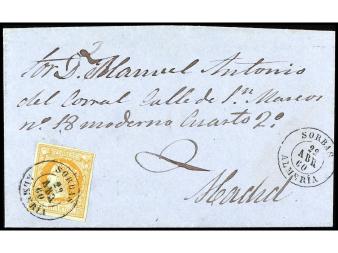 Sor D. Manuel Antonio
del Corral Calle de Sn. Marcos
nº 18 moderno Cuarto 2º
Madrid
SORBAS
22
ABR
60
ALMERIA
SORBAS
22
ABR
60
ALMERIA